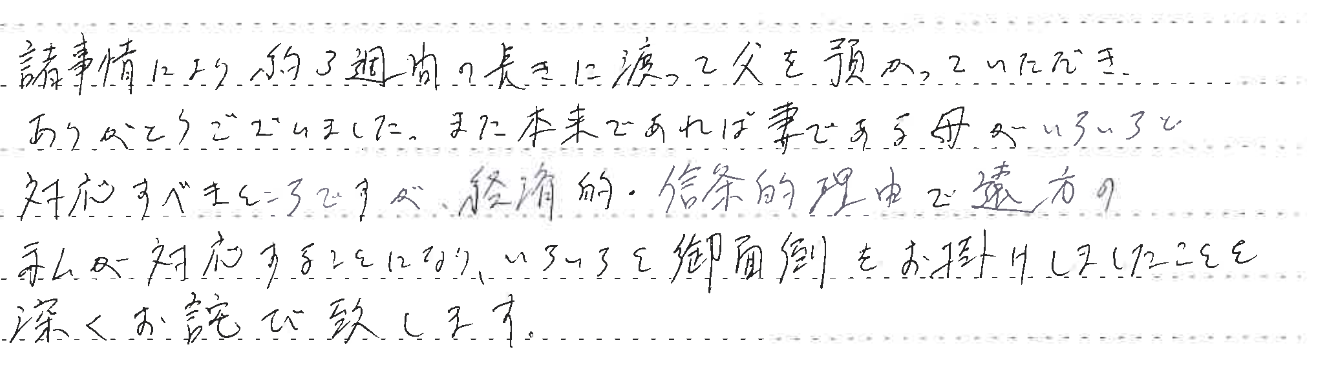 諸事情により約3週間の長きに渡って父を預かっていただき、
ありがとうございました。また本来であれば妻である母がいろいろと
対応すべきところですが、経済的・信条的理由で遠方の
私が対応することになり、いろいろと御面倒をお掛けしましたことを
深くお詫び致します。